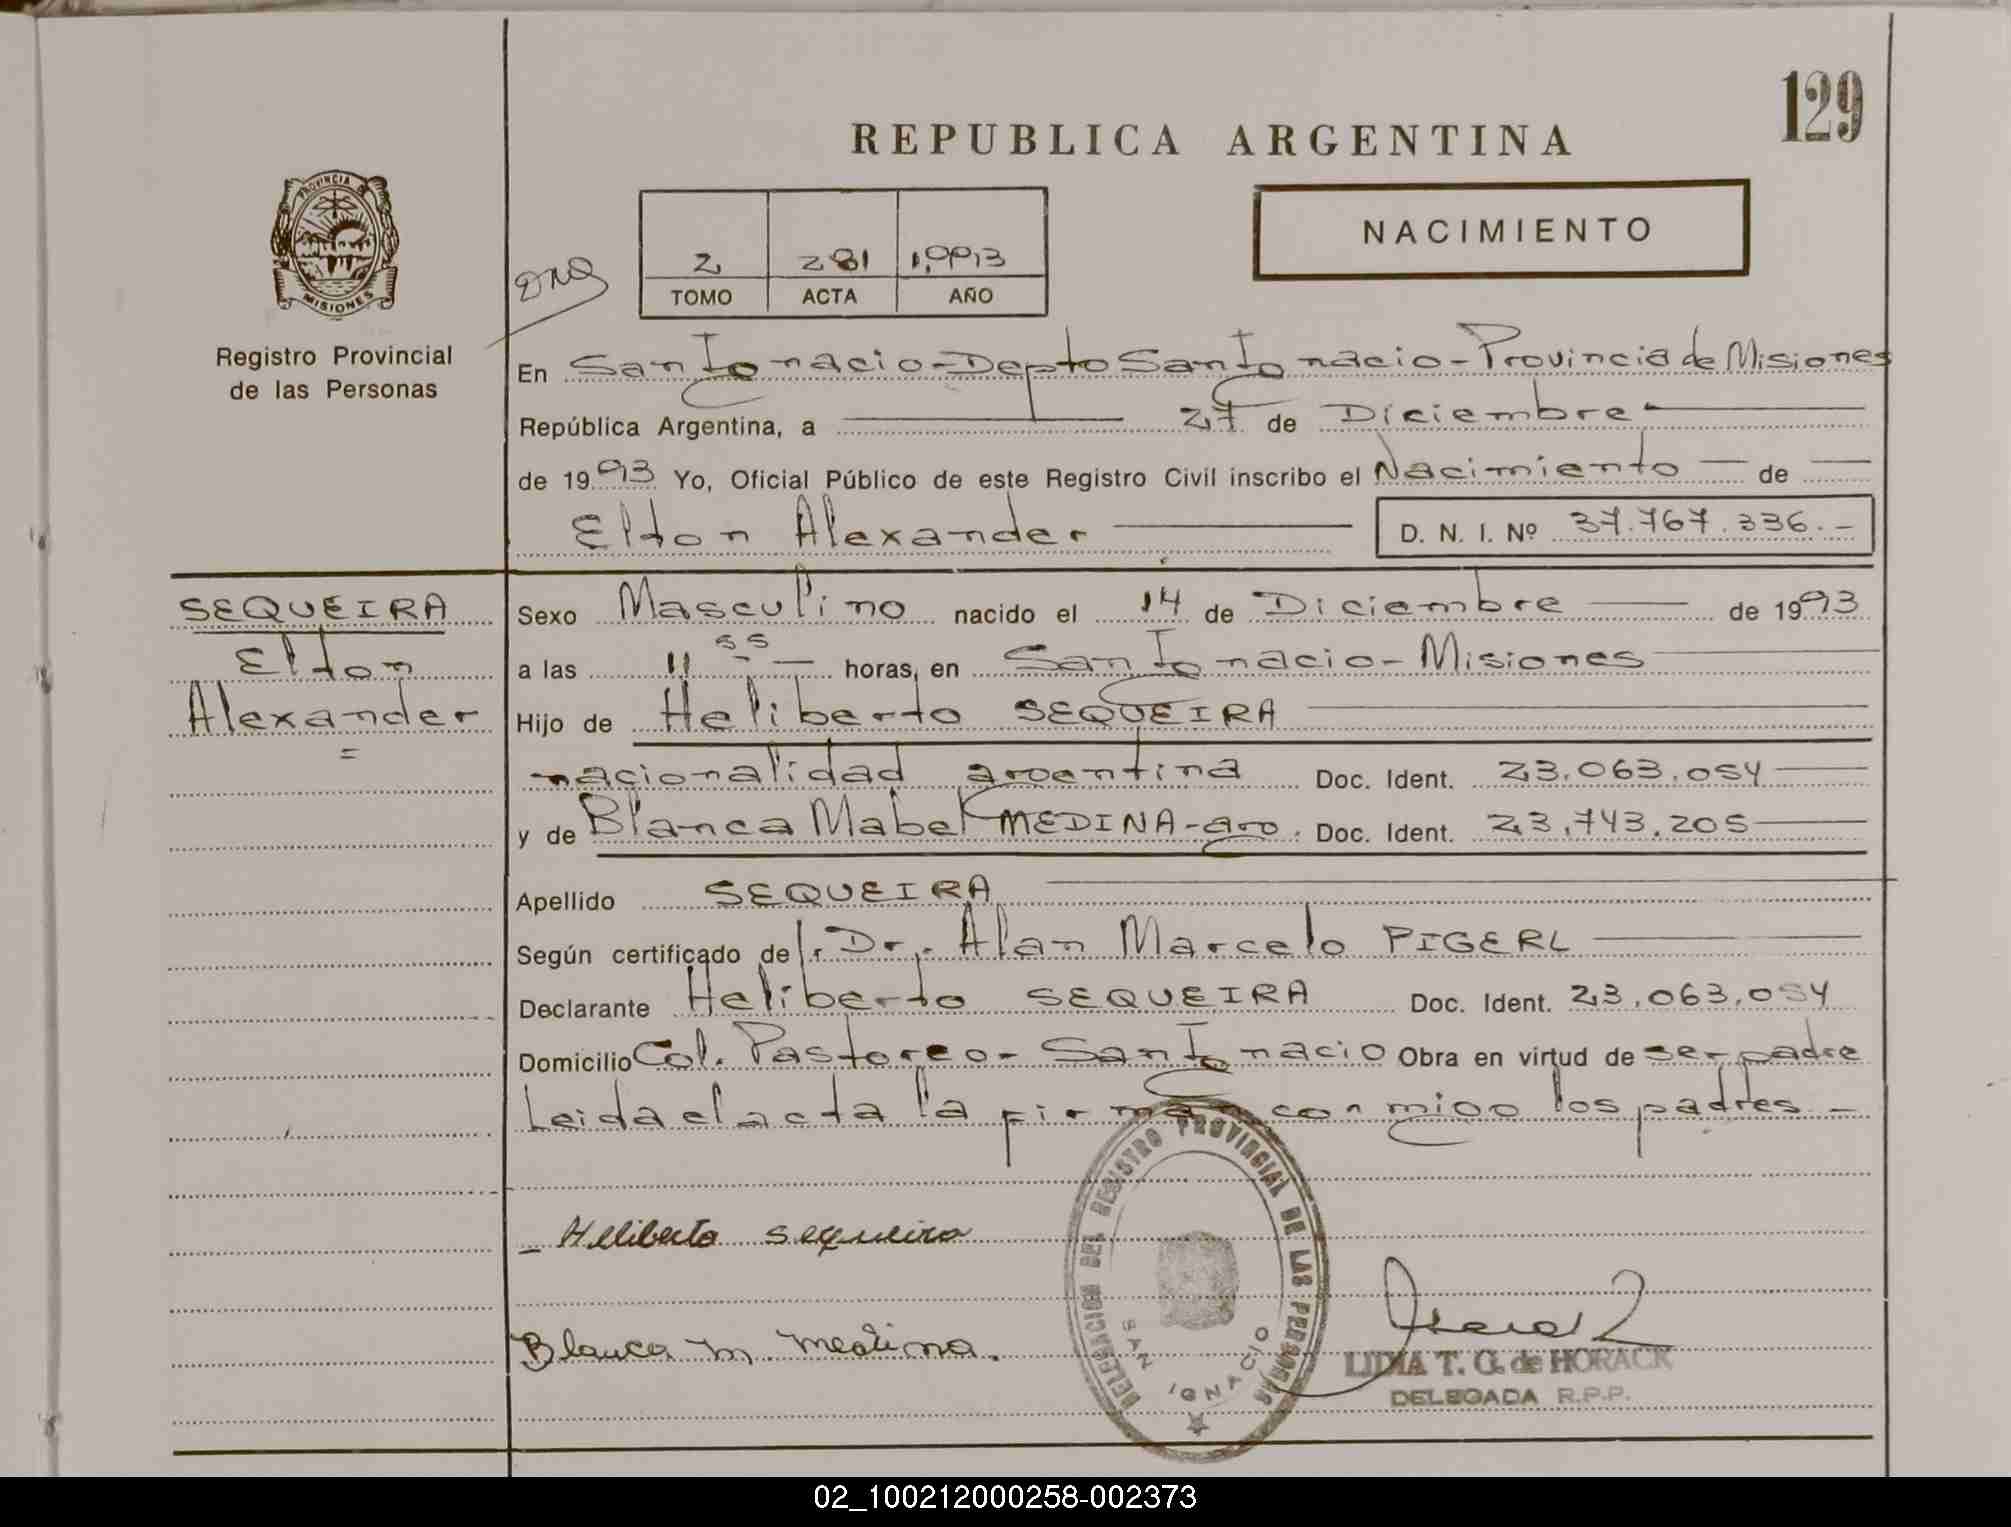 129
REPUBLICA ARGENTINA
NACIMIENTO
PROVINCIA DE
MISIONES
Registro Provincial
de las Personas
2 281 1.993
TOMO ACTA AÑO
En San Ignacio - Depto San Ignacio - Provincia de Misiones
República Argentina, a 27 de Diciembre
de 1993 Yo, Oficial Público de este Registro Civil inscribo el Nacimiento de
Elton Alexander D. N. I. Nº 37.767.336.-
SEQUEIRA
Elton
Alexander
=
Sexo Masculino nacido el 14 de Diciembre de 1993
a las 11 55 horas, en San Ignacio - Misiones
Hijo de Heliberto SEQUEIRA
nacionalidad argentina Doc. Ident. 23.063.054
y de Blanca Mabel MEDINA - arg. Doc. Ident. 23.743.205
Apellido SEQUEIRA
Según certificado del. Dr. Alan Marcelo PIGERL
Declarante Heliberto SEQUEIRA Doc. Ident. 23.063.054
Domicilio Col. Pastoreo - San Ignacio Obra en virtud de ser padre
Leida el acta la firman conmigo los padres -
- Heliberto sequeira
Blanca M. Medina.
DELEGACION DEL REGISTRO PROVINCIAL DE LAS PERSONAS
SAN IGNACIO
LIDIA T. G. de HORACK
DELEGADA R.P.P.
02_100212000258-002373